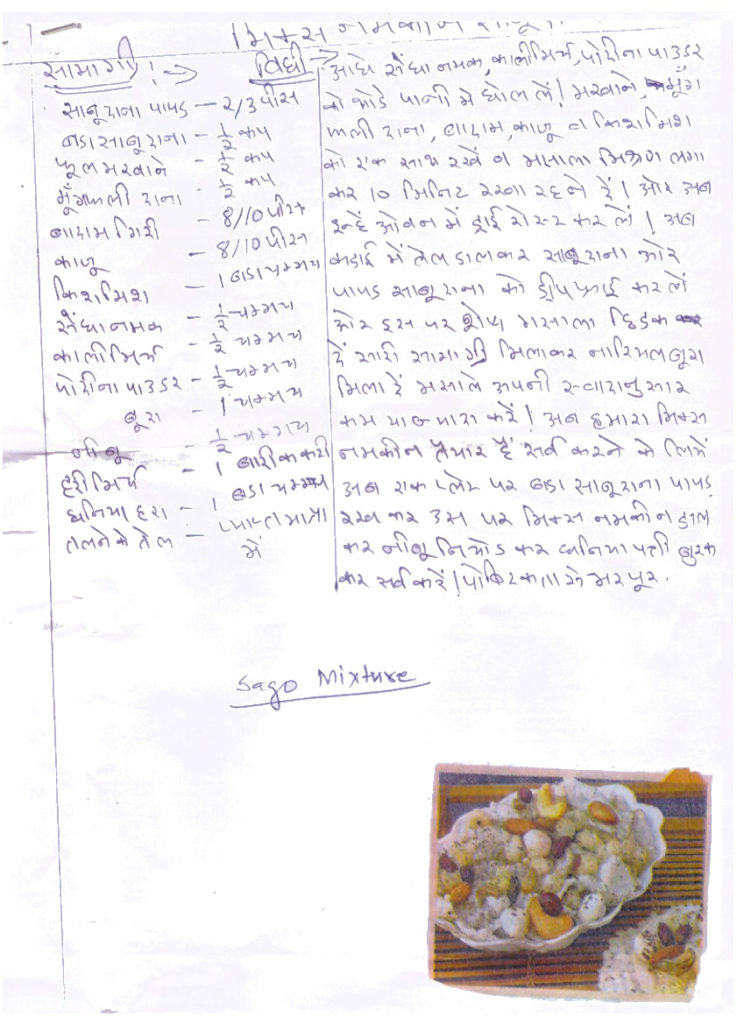 मिक्स नमकीन
सामाग्री! →
साबूदाना पापड — 2/3 पीस
बडा साबूदाना - 1/2 कप
फूल मखाने - 1/2 कप
मूँगफली दाना - 1/2 कप
बादाम गिरी - 8/10 पीस
काजू - 8/10 पीस
किशमिश - 1 बडा चम्मच
सेंधा नमक - 1/2 चम्मच
काली मिर्च - 1/2 चम्मच
पोदीना पाउडर - 1/2 चम्मच
बूरा - 1 चम्मच
नीबू - 1/2 चम्मच
हरी मिर्च - 1 बारीक करी
धनिया हरा - 1 बडा चम्मच
तलने के तेल - प्रयाप्त मात्रा
में
विधी → आधा सेंधा नमक, काली मिर्च, पोदीना पाउडर
को थोडे पानी मे घोल लें! मखाने, मूँग
फली दाना, बादाम, काजू व किशमिश
को एक साथ रखें व मसाला मिश्रण लगा
कर 10 मिनिट रखा रहने दें। ओर अब
इन्हें ओवन में ड्राई रोस्ट कर लें। अब
कडाई में तेल डालकर साबूदाना ओर
पापड साबूदाना को डीप फ्राई कर लें
ओर इस पर शेष मसाला छिडक
दें सारी सामाग्री मिलाकर नारियल बूरा
मिला दें मसाले अपनी स्वादानुसार
कम या ज्यादा करें। अब हमारा मिक्स
नमकीन तैयार हैं सर्व करने के लिये
अब एक प्लेट पर बडा साबूदाना पापड
रख कर उस पर मिक्स नमकीन डाल
कर नीबू निचोड कर धनिया पत्ती बुरक
कर सर्व करें। पोष्टिकता से भरपूर.
Sago Mixture